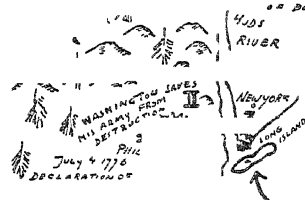 4JDS
RIVER
WASHINGTON SAVES
HIS ARMY FROM
DESTRUCTION
II
NEWYORK
LONG
ISLAND
PHIL
JULY 4 1776
DECLARATION OF